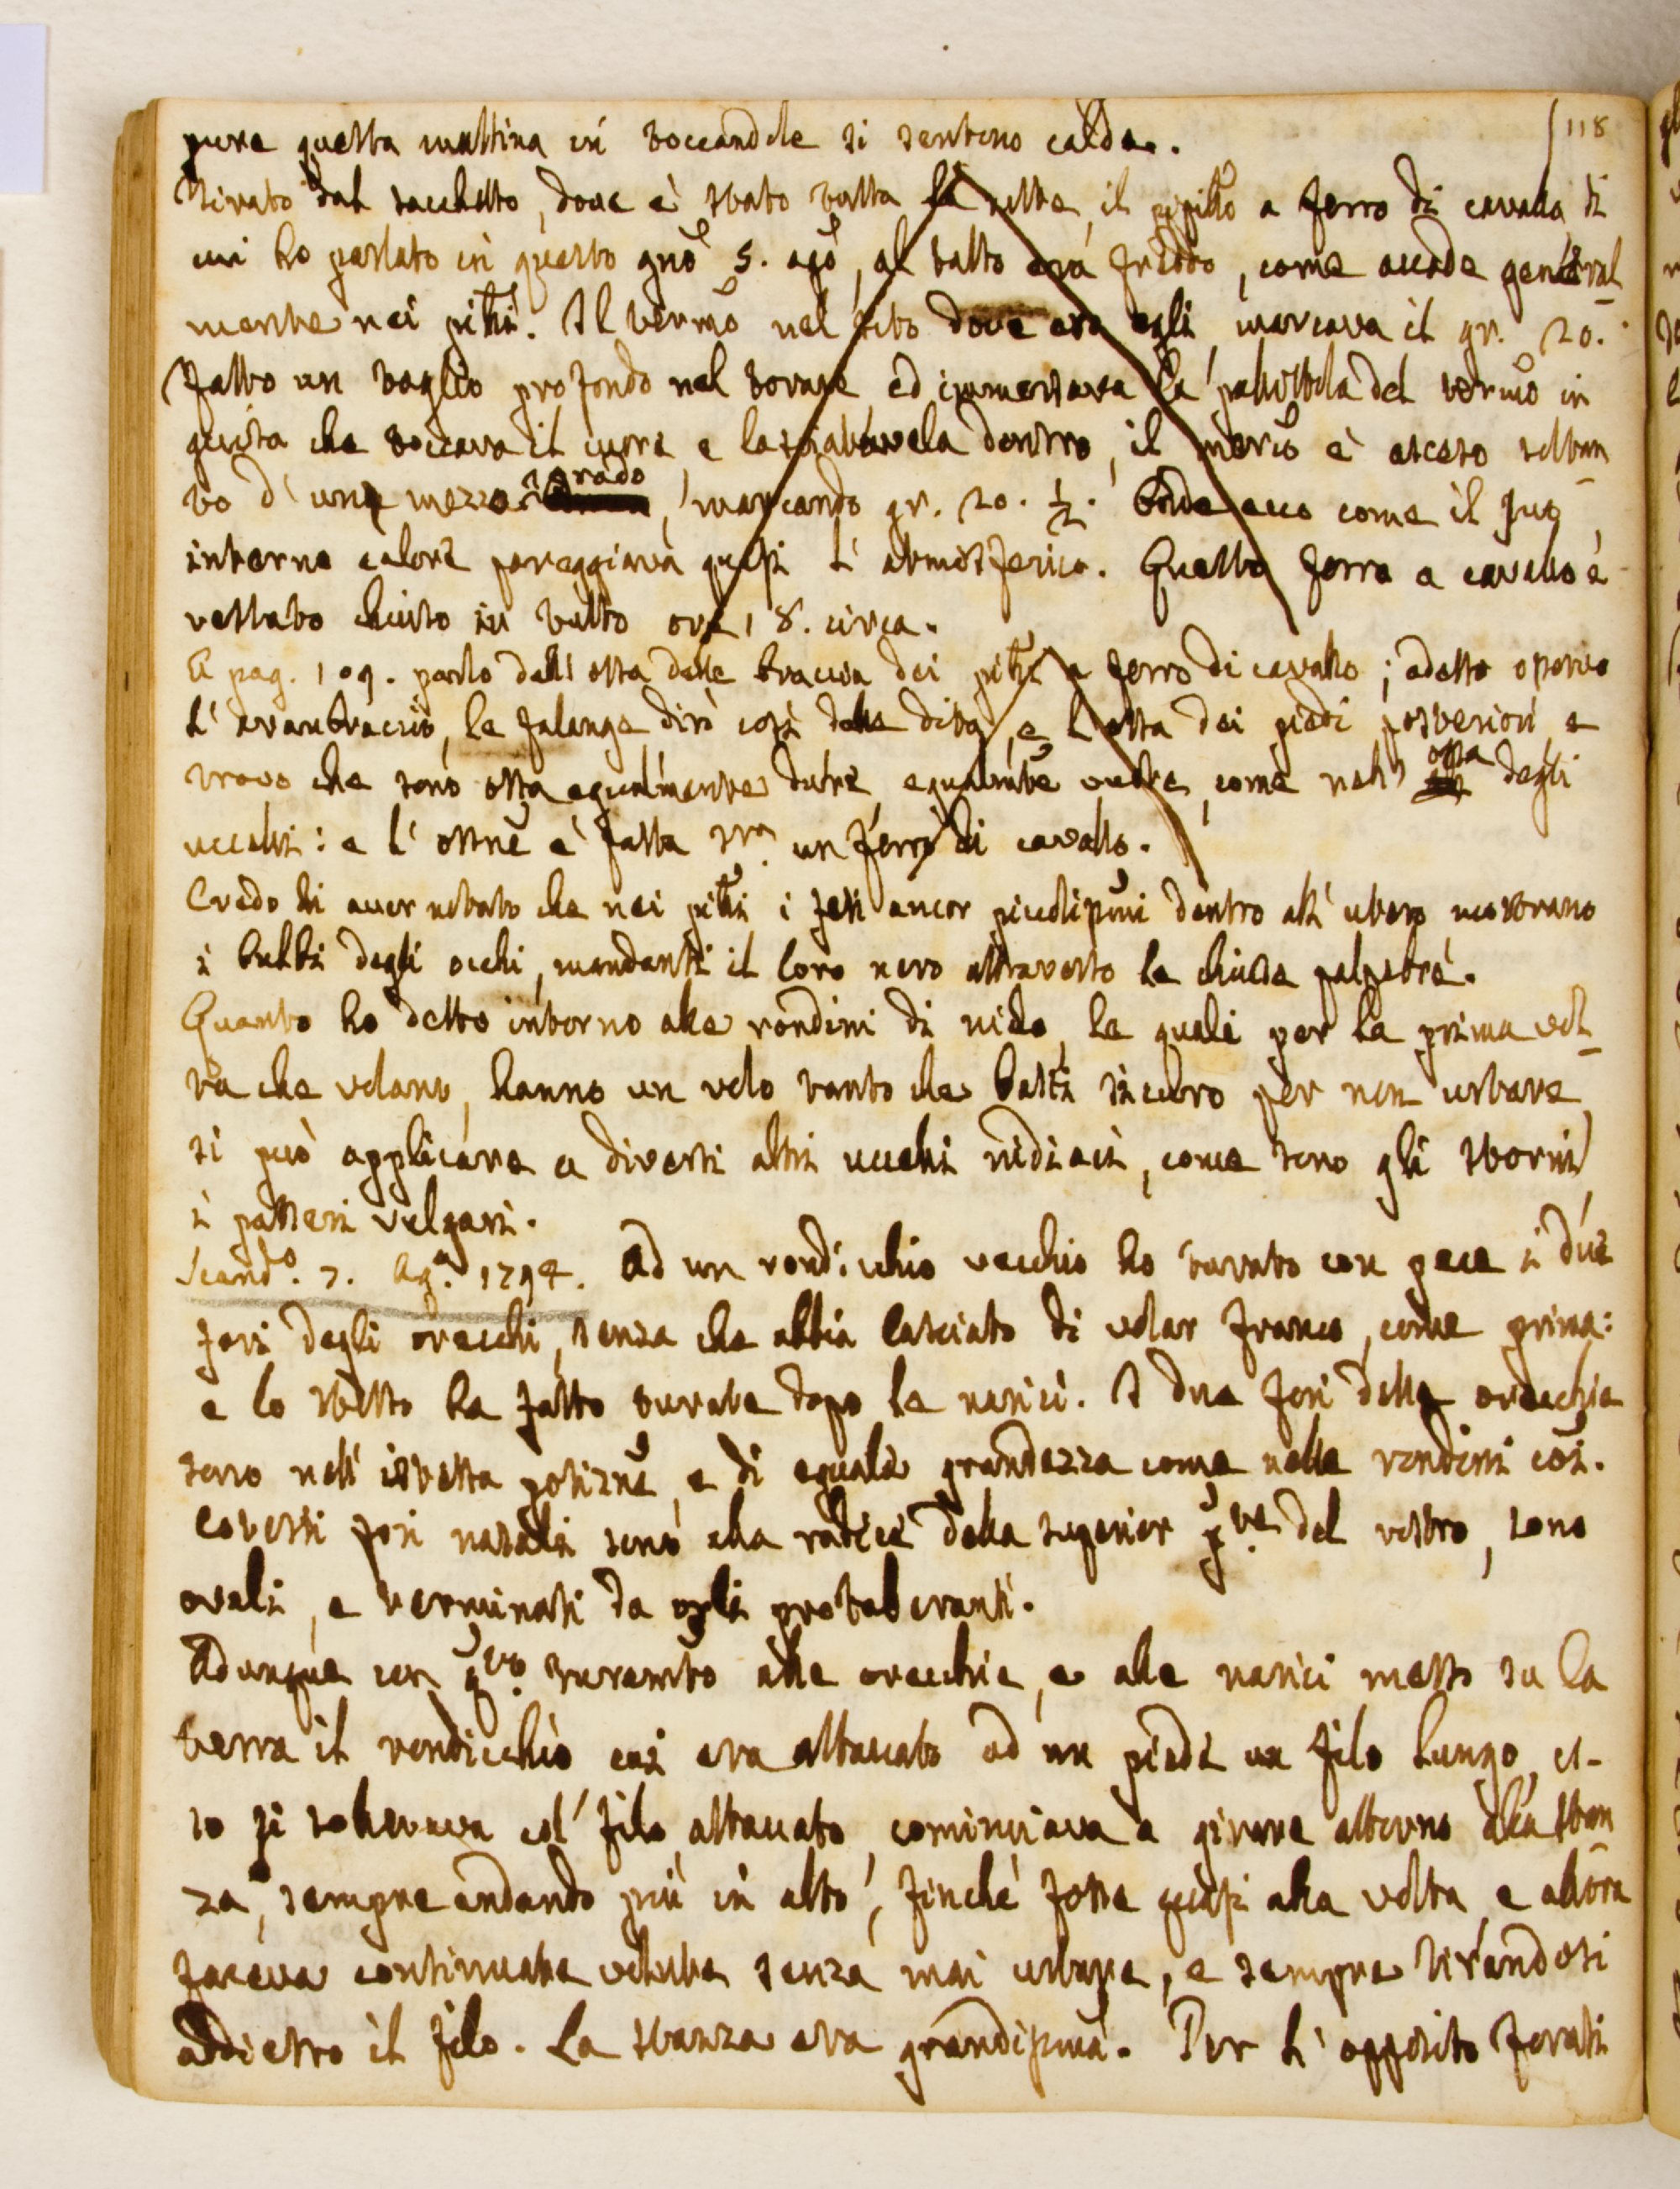 118
pure questa mattina in toccandole si sentono calde.
Tirato dal sacchetto, dove è stato tutta la notte, il pipillo a ferro di cavallo, di
cui ho parlato in questo gno 5. ago, al tatto era freddo, come accade general
mente nei pilli. Il termo nel sito dove era egli, marcava il gr. 20.
Fatto un taglio profondo nel torace ed immersava la pallottola del termo in
guisa che toccava il cuore e lasciatavela dentro, il merco è asceso soltan
to d'un mezzo grado, marcando gr. 20. ½. Onde ecco come il suo
interno calore pareggiava quasi l'atmosferico. Questo ferro a cavallo è
restato chiuso in tutto ore 18. circa.
A pag. 109. parlo dell'ossa delle braccia dei pilli a ferro di cavallo; adesso osservo
l'avambraccio, le falange dirò così delle dita, e l'ossa dei piedi posteriori, e
trovo che sono ossa egualmente dure, egualmte vuote, come nell' ossa degli
uccelli: e l'ossne è fatta sra un ferro di cavallo.
Credo di aver notato che nei pilli i feti ancor piccolissimi dentro all'utero mostrano
i bulbi degli occhi, mandanti il loro nero attraverso le chiuse palpebre.
Quanto ho detto intorno alle rondini di nido, le quali per la prima vol
ta che volano, hanno un volo tanto che basti sicuro per non urtare,
si può applicare a diversi altri uccelli nidiaci, come sono gli storni,
i passeri volgari.
Scando. 7. Ago. 1794. Ad un rondicchio vecchio ho turato con pece i due
fori degli orecchi, senza che abbia lasciato di volar franco, come prima:
e lo stesso ha fatto turate dopo le narici. I due fori delle orecchie
sono nell'istessa posizne, e di eguale grandezza come nelle rondini così.
Coversi fori nasali sono alla radice della superior pte del rostro, sono
ovali, e terminati da orli protuberanti.
Adunque con qto turamto alle orecchie, e alle narici messo su la
terra il rondicchio cui era attaccato ad un piede un filo lungo, es-
so si sollevava col filo attaccato, cominciava a girare attorno alla stan
za, sempre andando più in alto, finchè fosse quasi alla volta, e allora
faceva continuate volute senza mai urtare, e sempre tirandosi
addietro il filo. La stanza era grandissima. Per l'opposito forati